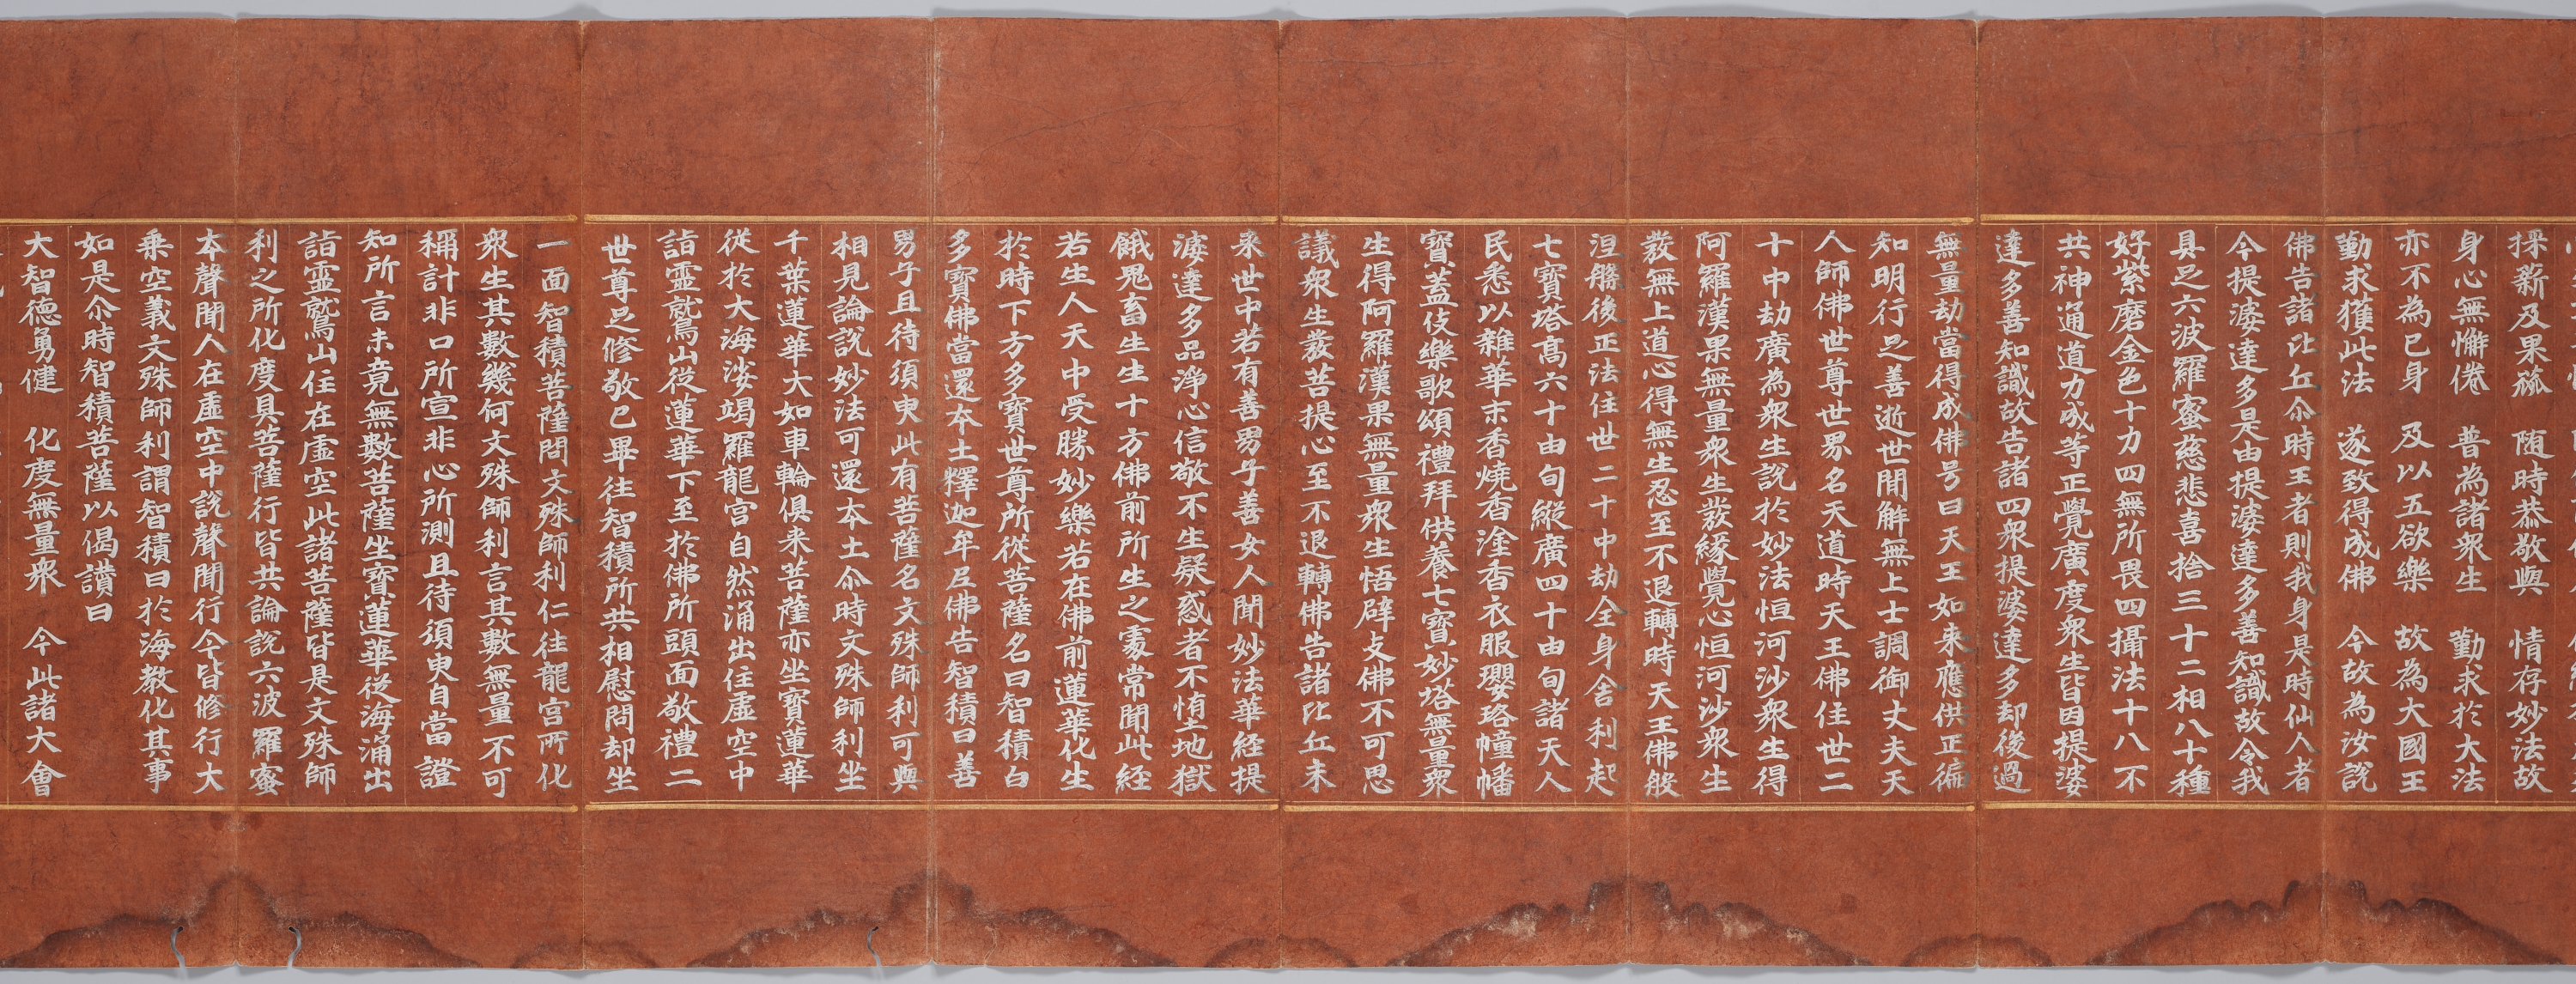 採薪及果蓏　随時恭敬與　情存妙法故
身心無懈倦　普為諸衆生　勤求於大法
亦不為己身　及以五欲樂　故為大國王
勤求獲此法　遂致得成佛　今故為汝說
佛告諸比丘尒時王者則我身是時仙人者
今提婆達多是由提婆達多善知識故令我
具足六波羅蜜慈悲喜捨三十二相八十種
好紫磨金色十力四無所畏四攝法十八不
共神通道力成等正覺廣度衆生皆因提婆
達多善知識故告諸四衆提婆達多却後過
無量劫當得成佛号曰天王如来應供正徧
知明行足善逝世間解無上士調御丈夫天
人師佛世尊世界名天道時天王佛住世二
十中劫廣為衆生說於妙法恒河沙衆生得
阿羅漢果無量衆生發緣覺心恒河沙衆生
發無上道心得無生忍至不退轉時天王佛般
涅槃後正法住世二十中劫全身舍利起
七寶塔高六十由旬縱廣四十由旬諸天人
民悉以雜華末香燒香塗香衣服瓔珞幢幡
寶蓋伎樂歌頌禮拜供養七寶妙塔無量衆
生得阿羅漢果無量衆生悟辟支佛不可思
議衆生發菩提心至不退轉佛告諸比丘未
来世中若有善男子善女人聞妙法華経提
婆達多品淨心信敬不生疑惑者不墮地獄
餓鬼畜生生十方佛前所生之處常聞此経
若生人天中受勝妙樂若在佛前蓮華化生
於時下方多寶世尊所從菩薩名曰智積白
多寶佛當還本土釋迦牟尼佛告智積曰善
男子且待須臾此有菩薩名文殊師利可與
相見論說妙法可還本土尒時文殊師利坐
千葉蓮華大如車輪俱来菩薩亦坐寶蓮華
從於大海娑竭羅龍宮自然涌出住虛空中
詣靈鷲山從蓮華下至於佛所頭面敬禮二
世尊足修敬已畢往智積所共相慰問却坐
一面智積菩薩問文殊師利仁往龍宮所化
衆生其數幾何文殊師利言其數無量不可
稱計非口所宣非心所測且待須臾自當證
知所言未竟無數菩薩坐寶蓮華從海涌出
詣靈鷲山住在虛空此諸菩薩皆是文殊師
利之所化度具菩薩行皆共論說六波羅蜜
本聲聞人在虛空中說聲聞行今皆修行大
乗空義文殊師利謂智積曰於海教化其事
如是尒時智積菩薩以偈讃曰
大智德勇健　化度無量衆　今此諸大會